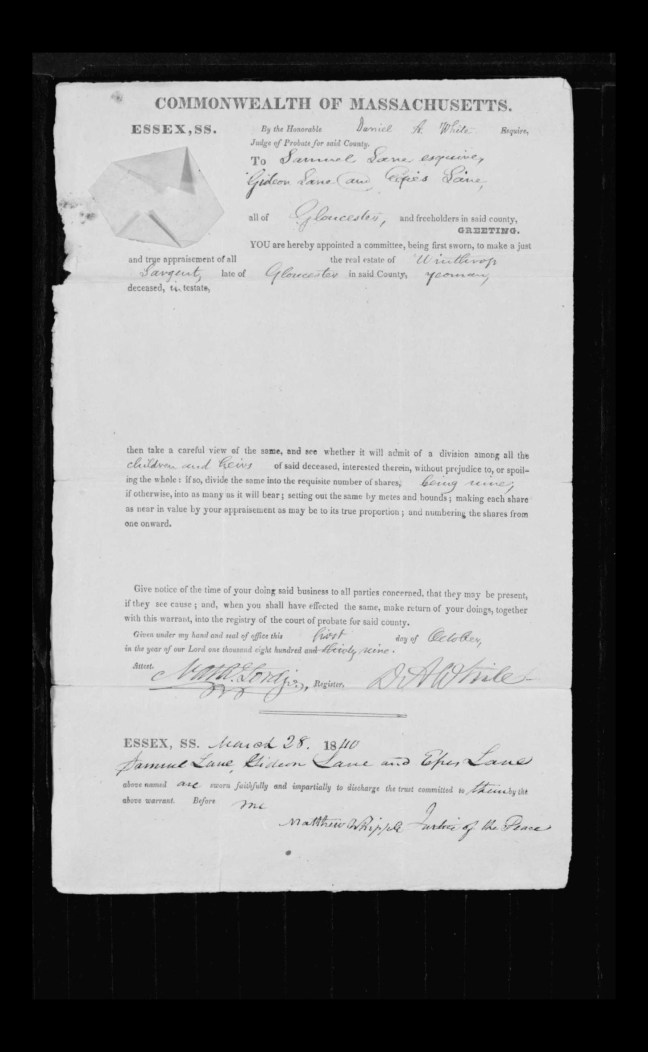 COMMONWEALTH OF MASSACHUSETTS.
ESSEX, SS. By the Honorable Daniel A White Esquire,
Judge of Probate for said County.
To Samuel Lane esquire,
Gideon Lane and Epes Lane,
all of Gloucester, and freeholders in said county,
GREETING.
YOU are hereby appointed a committee, being first sworn, to make a just
and true appraisement of all the real estate of Winthrop
Sargent, late of Gloucester in said County, yeoman,
deceased, testate,
then take a careful view of the same, and see whether it will admit of a division among all the
children and heirs of said deceased, interested therein, without prejudice to, or spoil-
ing the whole: if so, divide the same into the requisite number of shares, being nine,
if otherwise, into as many as it will bear; setting out the same by metes and bounds; making each share
as near in value by your appraisement as may be to its true proportion; and numbering the shares from
one onward.
Give notice of the time of your doing said business to all parties concerned, that they may be present,
if they see cause; and, when you shall have effected the same, make return of your doings, together
with this warrant, into the registry of the court of probate for said county.
Given under my hand and seal of office this first day of October,
in the year of our Lord one thousand eight hundred and thirty nine.
Attest.
Register. D. A. White
ESSEX, SS. March 28. 1840
Samuel Lane, Gideon Lane and Epes Lane
above named are sworn faithfully and impartially to discharge the trust committed to them by the
above warrant. Before me
Matthew Whipple Justice of the Peace